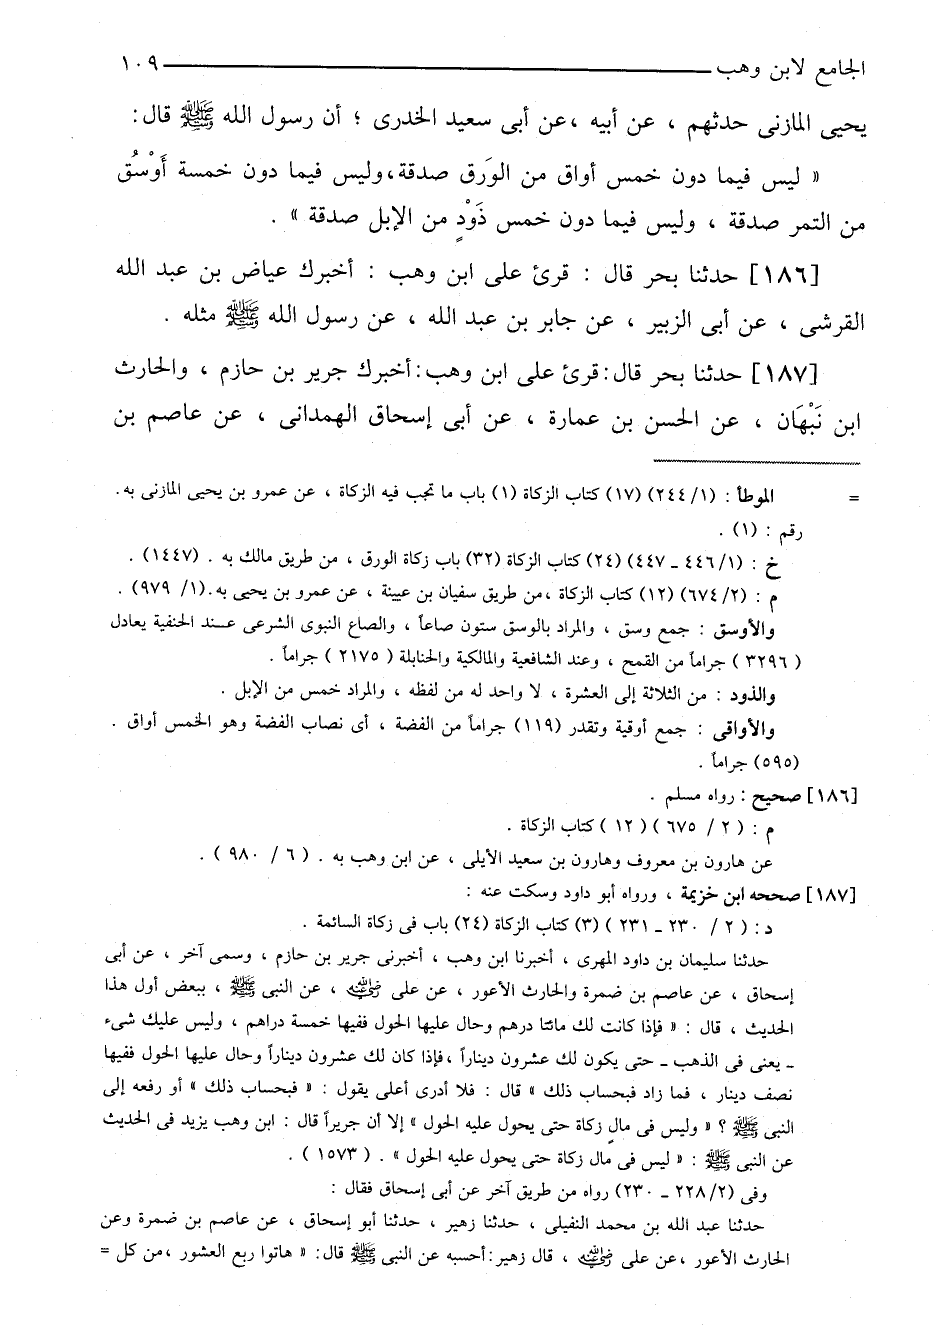 الجامع لابن وهب ١٠٩
يحيى المازنى حدثهم ، عن أبيه ،عن أبى سعيد الخدرى ؛ أن رسول الله ﷺ قال :
« ليس فيما دون خمس أواق من الوَرِق صدقة،وليس فيما دون خمسة أَوْسُق
من التمر صدقة ، وليس فيما دون خمس ذَوْدٍ من الإبل صدقة » .
[١٨٦] حدثنا بحر قال : قرئ على ابن وهب : أخبرك عياض بن عبد الله
القرشى ، عن أبى الزبير ، عن جابر بن عبد الله ، عن رسول الله ﷺ مثله .
[١٨٧] حدثنا بحر قال:قرئ على ابن وهب:أخبرك جرير بن حازم ، والحارث
ابن نَبْهَان ، عن الحسن بن عمارة ، عن أبى إسحاق الهمدانى ، عن عاصم بن
= الموطأ : (١/ ٢٤٤) (١٧) كتاب الزكاة (١) باب ما تجب فيه الزكاة ، عن عمرو بن يحيى المازنى به.
رقم : (١) .
خ : (١/ ٤٤٦ ـ ٤٤٧) (٢٤) كتاب الزكاة (٣٢) باب زكاة الورق ، من طريق مالك به . (١٤٤٧) .
م : (٢/ ٦٧٤) (١٢) كتاب الزكاة ،من طريق سفيان بن عيينة ، عن عمرو بن يحيى به.(١/ ٩٧٩) .
والأوسق : جمع وسق ، والمراد بالوسق ستون صاعاً ، والصاع النبوى الشرعى عـند الحنفية يعادل
( ٣٢٩٦ ) جراماً من القمح ، وعند الشافعية والمالكية والحنابلة ( ٢١٧٥ ) جراماً .
والذود : من الثلاثة إلى العشرة ، لا واحد له من لفظه ، والمراد خمس من الإبل .
والأواقى : جمع أوقية وتقدر (١١٩) جراماً من الفضة ، أى نصاب الفضة وهو الخمس أواق .
(٥٩٥) جراماً .
[١٨٦] صحيح : رواه مسلم .
م : ( ٢ / ٦٧٥ ) ( ١٢ ) كتاب الزكاة .
عن هارون بن معروف وهارون بن سعيد الأيلى ، عن ابن وهب به . ( ٦ / ٩٨٠ ) .
[١٨٧] صححه ابن خزيمة ، ورواه أبو داود وسكت عنه :
د : ( ٢ / ٢٣٠ ـ ٢٣١ ) (٣) كتاب الزكاة (٢٤) باب فى زكاة السائمة .
حدثنا سليمان بن داود المهرى ، أخبرنا ابن وهب ، أخبرنى جرير بن حازم ، وسمى آخر ، عن أبى
إسحاق ، عن عاصم بن ضمرة والحارث الأعور ، عن على رضي الله عنه ، عن النبى ﷺ ، ببعض أول هذا
الحديث ، قال : « فإذا كانت لك مائتا درهم وحال عليها الحول ففيها خمسة دراهم ، وليس عليك شىء
ـ يعنى فى الذهب ـ حتى يكون لك عشرون ديناراً ،فإذا كان لك عشرون ديناراً وحال عليها الحول ففيها
نصف دينار ، فما زاد فبحساب ذلك » قال : فلا أدرى أعلى يقول : « فبحساب ذلك » أو رفعه إلى
النبى ﷺ ؟ « وليس فى مالٍ زكاة حتى يحول عليه الحول » إلا أن جريراً قال : ابن وهب يزيد فى الحديث
عن النبى ﷺ : « ليس فى مال زكاة حتى يحول عليه الحول » . ( ١٥٧٣ ) .
وفى (٢/ ٢٢٨ ـ ٢٣٠) رواه من طريق آخر عن أبى إسحاق فقال :
حدثنا عبد الله بن محمد النفيلى ، حدثنا زهير ، حدثنا أبو إسحاق ، عن عاصم بن ضمرة وعن
الحارث الأعور ،عن على رضي الله عنه ، قال زهير:أحسبه عن النبى ﷺ قال: « هاتوا ربع العشور ،من كل =